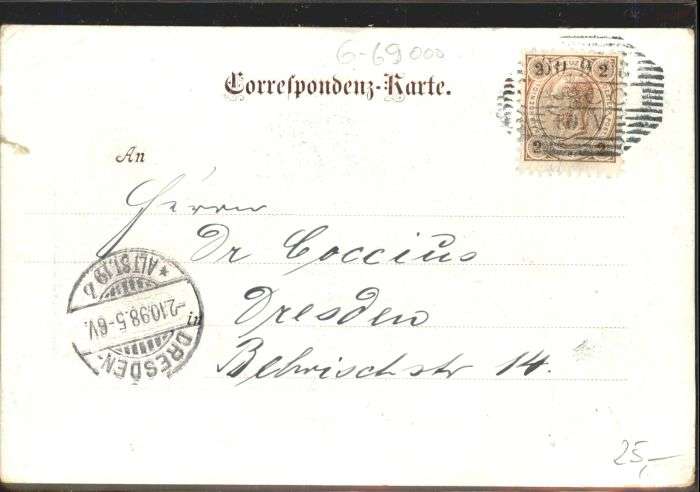 6-69000
Correſpondenz-Karte.
2 2
2 2
An
Herrn
Dr Coccius
in Dresden
14.
DRESDEN-
* ALTST. 19 b
-2.10.98.5-6V.
25,-